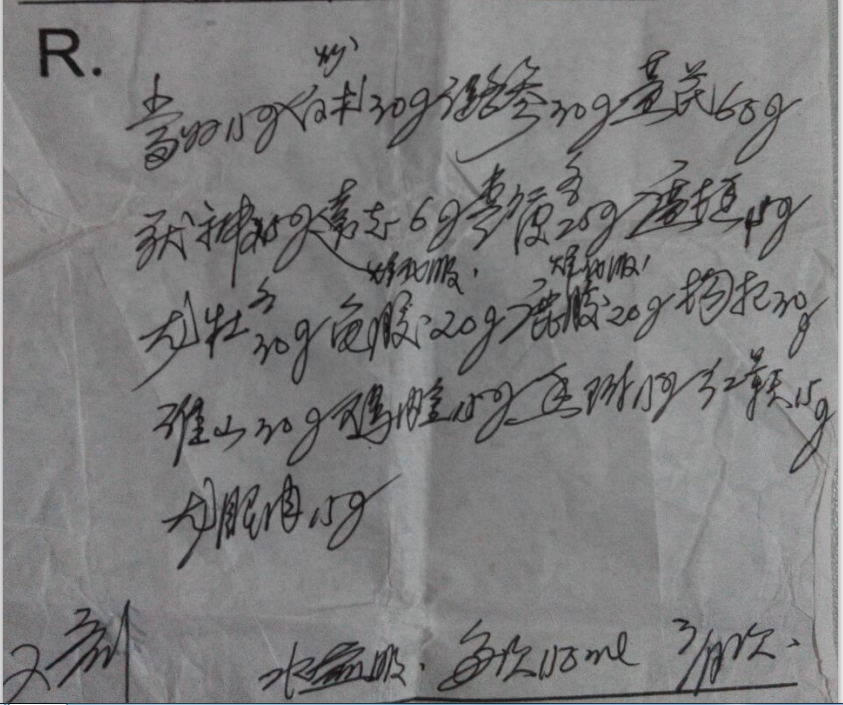 R.
炒
当归15g 白术30g 潞参30g 黄芪60g
茯神15g 远志6g 各20g 15g
烊化服. 烊化服.
龙牡各30g 龟胶20g 鹿胶20g 枸杞30g
淮山30g 鸡内金15g 15g 红景天15g
龙眼肉15g
2剂 水煎服. 每次150ml 3/日次.